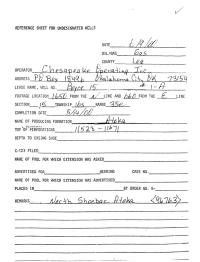 REFERENCE SHEET FOR UNDESIGNATED WELLS
DATE
OIL/GAS Gas
COUNTY Lea
OPERATOR Chesapeake Operating Inc.
ADDRESS PO Box 18496 Oklahoma City, OK 73154
LEASE NAME, WELL NO. Boyce 15 # 1-A
FOOTAGE LOCATION 1650 FROM THE N LINE AND 660 FROM THE E LINE
SECTION 15 TOWNSHIP 16s RANGE 35e
COMPLETION DATE
NAME OF PRODUCING FORMATION Atoka
TOP OF PERFORATIONS 11523 - 11671
DEPTH TO CASING SHOE
C-123 FILED
NAME OF POOL FOR WHICH EXTENSION WAS ASKED
ADVERTISED FOR HEARING CASE NO.
NAME OF POOL FOR WHICH EXTENSION WAS ADVERTISED
PLACED IN BY ORDER NO. R-
REMARKS North Shoebar Atoka (96763)